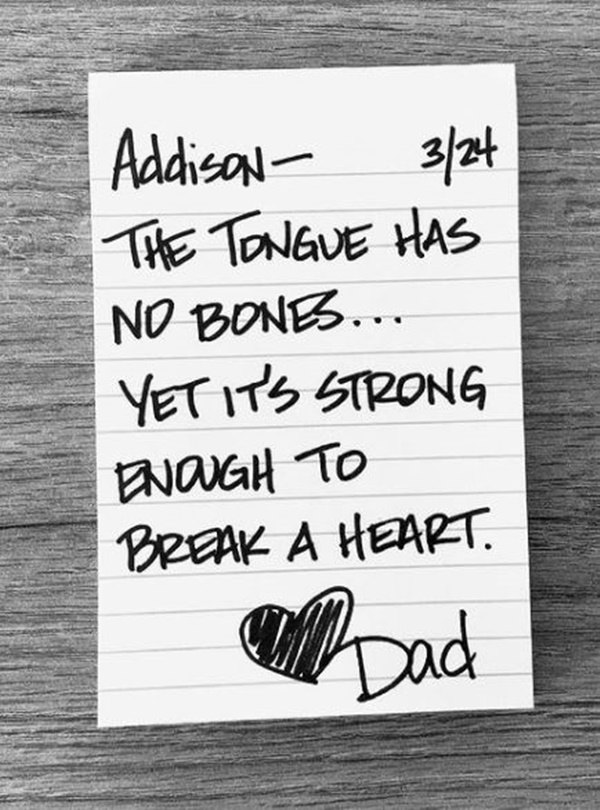 Addison— 3/24
THE TONGUE HAS
NO BONES...
YET IT'S STRONG
ENOUGH TO
BREAK A HEART.
Dad